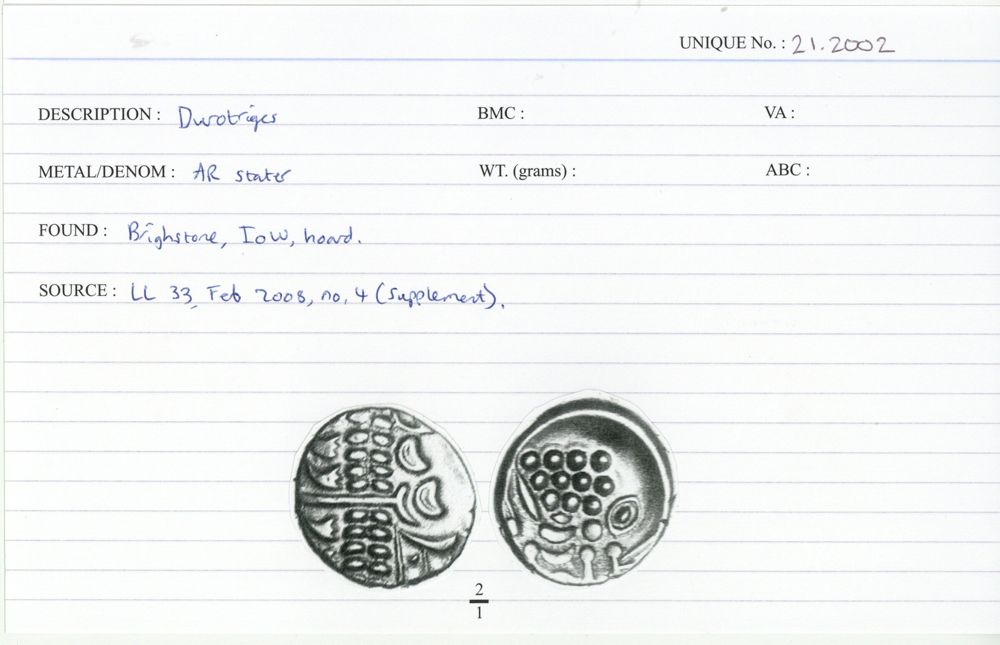 UNIQUE No. : 21.2002
DESCRIPTION : Durotriges BMC : VA :
METAL/DENOM : AR stater WT. (grams) : ABC :
FOUND : Brighstone, IoW, hoard.
SOURCE : LL 33, Feb 2008, no. 4 (Supplement).
2
1